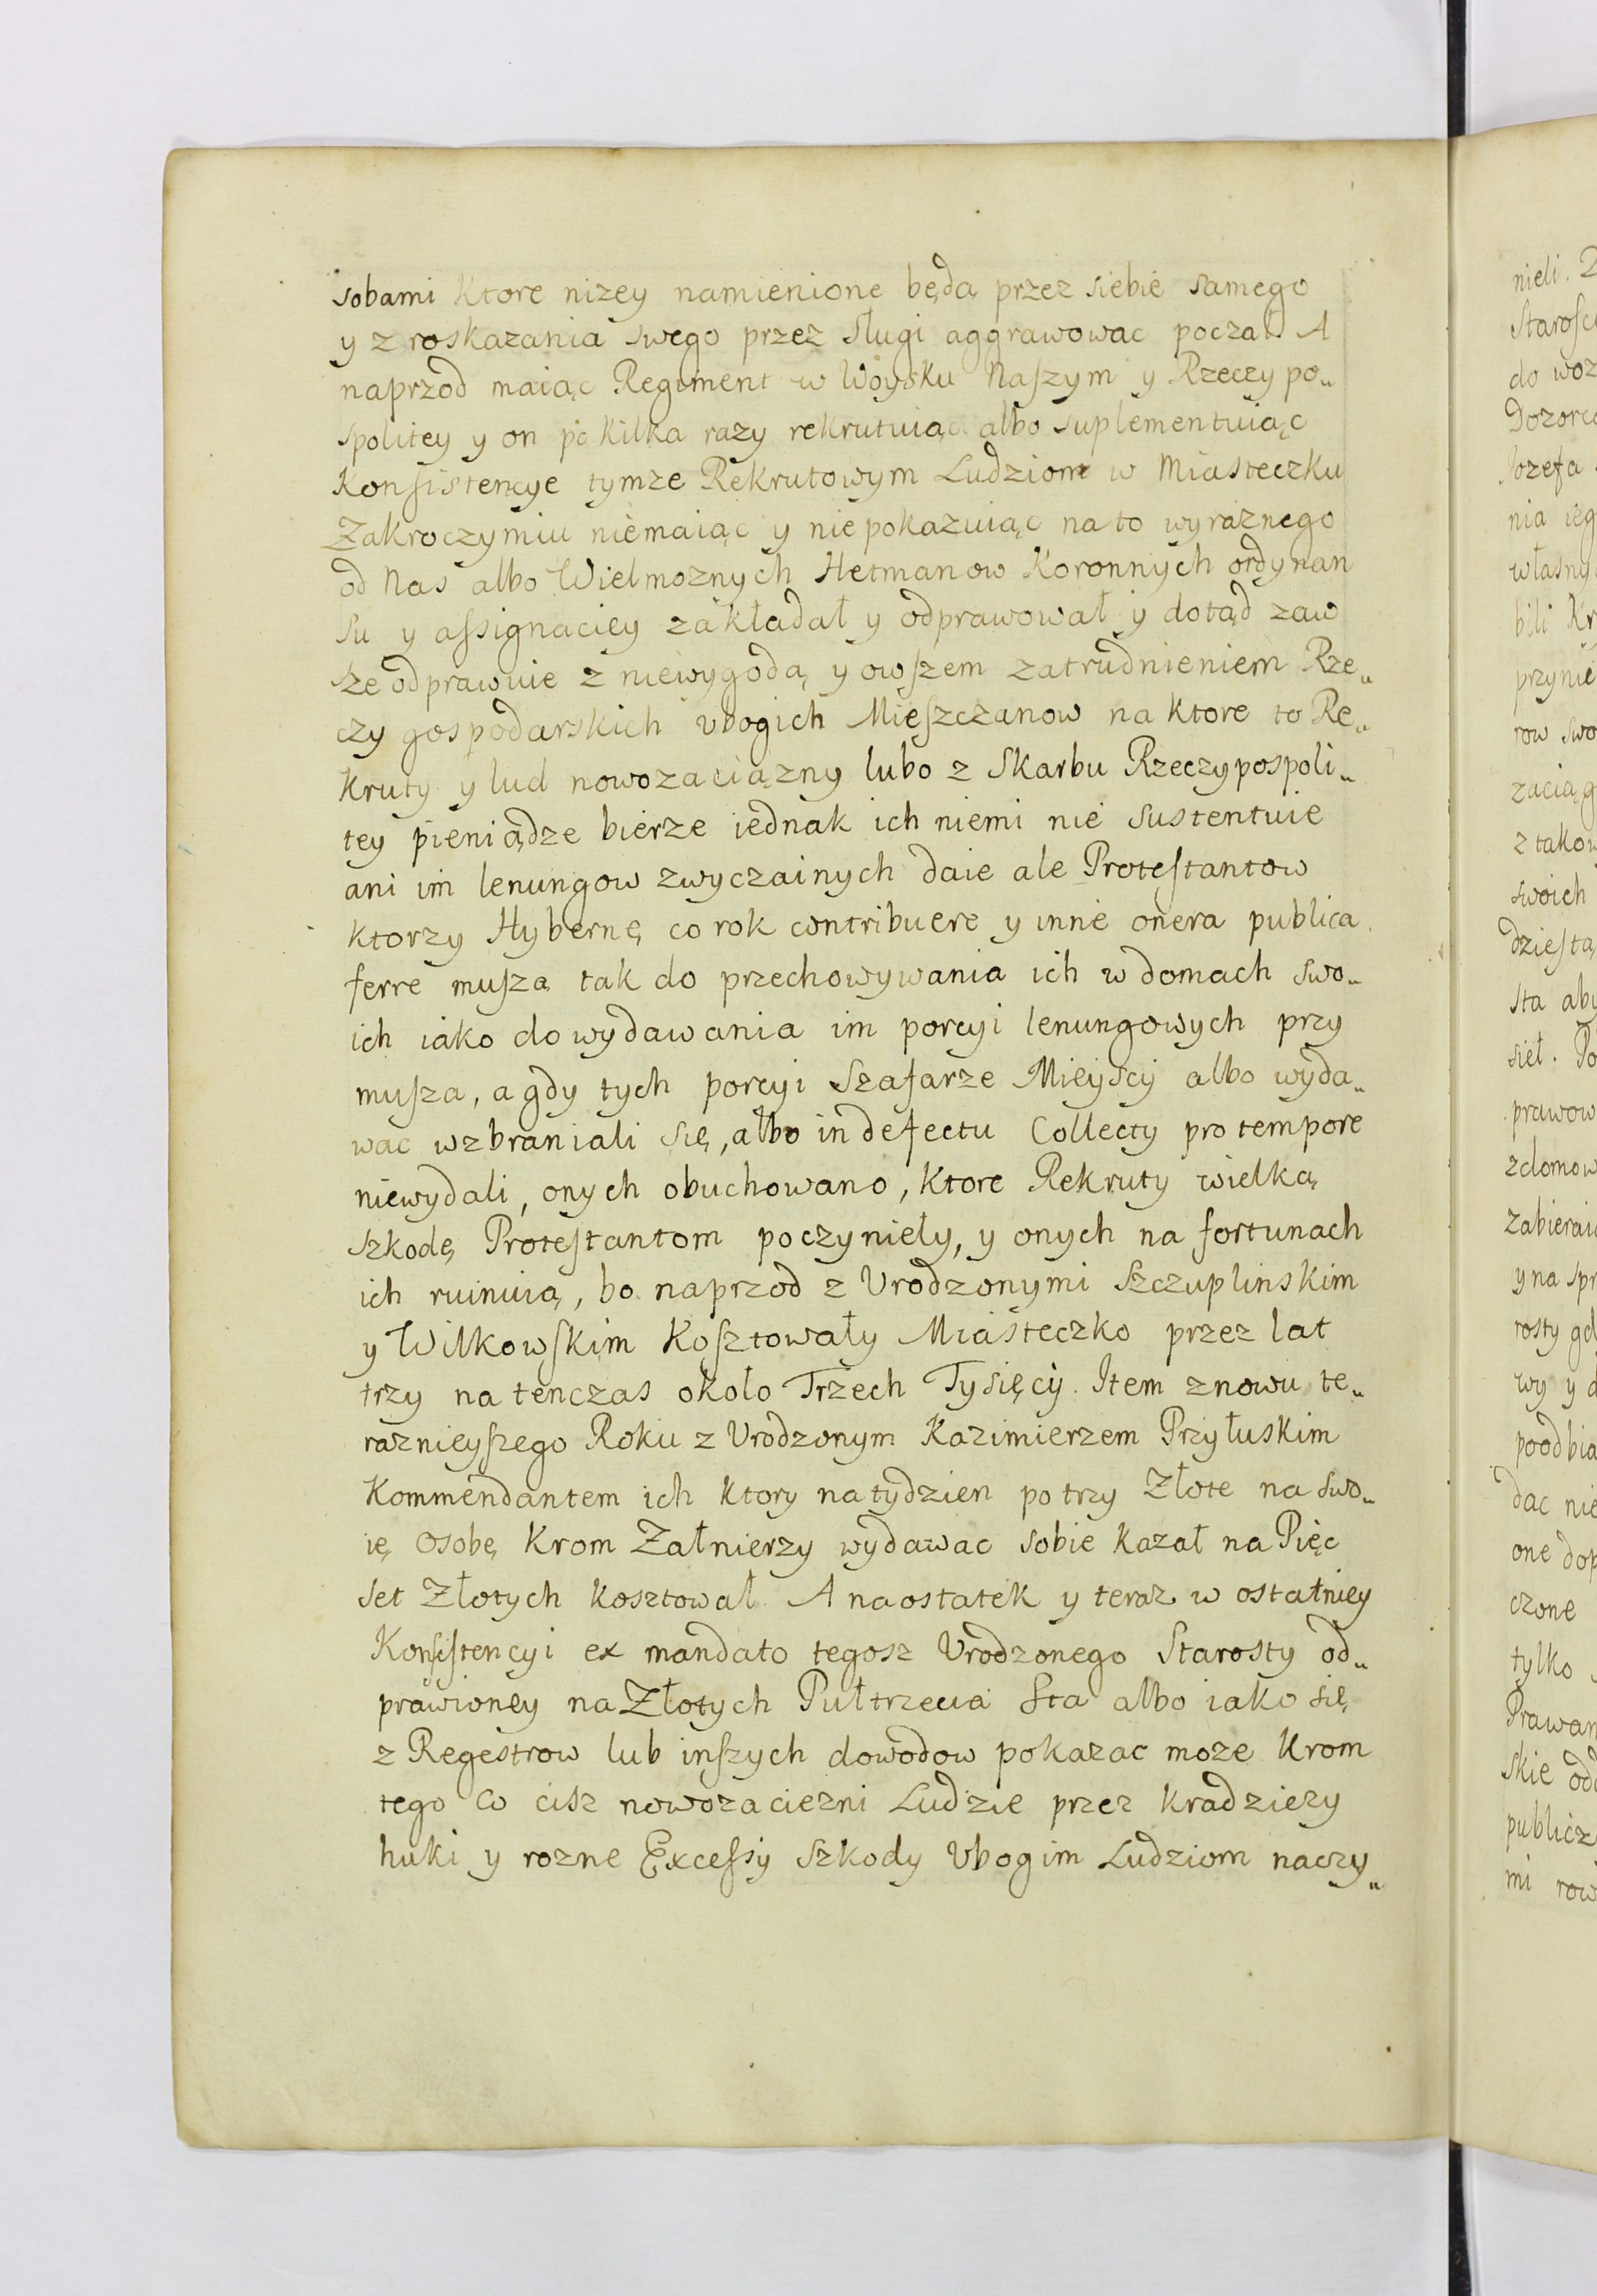 sobami ktore nizey namienione będą przez siebie samego
y z roskazania swego przez sługi aggrawowac począł A
naprzod maiąc Regiment w Woysku Naszym y Rzeczypo„
spolitey y on po kilka razy rekrutuiąc albo suplementuiąc
Konsistencye tymze Rekrutowym Ludziom w Miasteczku
Zakroczymiu niemaiąc y nie pokazuiąc na to wyraznego
od Nas albo Wielmoznych Hetmanow Koronnych ordynan
su y assignaciey zakładał y odprawował y dotąd zaw
sze odprawuie z niewygodą y owszem zatrudnieniem Rze„
czy gospodarskich vbogich Mieszczanow na ktore to Re„
kruty y lud nowozaciązny lubo z Skarbu Rzeczypospoli„
tey pieniądze bierze iednak ich niemi nie sustentuie
ani im lenungow zwyczainych daie ale Protestantow
ktorzy Hybernę co rok contribuere y inne onera publica
ferre muszą tak do przechowywania ich w domach swo„
ich iako do wydawania im porcyi lenungowych przy
musza, a gdy tych porcyi Szafarze Mieyscy albo wyda„
wac wzbraniali się, albo in defectu Collecty pro tempore
niewydali, onych obuchowano, ktore Rekruty wielką
szkodę Protestantom poczynieły, y onych na fortunach
ich ruinuią, bo naprzod z Vrodzonymi Szczuplinskim
y Wilkowskim Kosztowały Miasteczko przez lat
trzy na tenczas około Trzech Tysięcy. Item znowu te„
raznieyszego Roku z Vrodzonym Kazimierzem Przyłuskim
Kommendantem ich ktory na tydzien po trzy Złote na swo„
ię osobę krom Załnierzy wydawac sobie kazał na Pięc
set Złotych kosztował. A naostatek y teraz w ostatniey
Konsistencyi ex mandato tegosz Vrodzonego Starosty od„
prawioney na Złotych Pułtrzecia Sta albo iako się
z Regestrow lub inszych dowodow pokazac moze krom
tego co cisz nowozaciezni Ludzie przez kradziezy
huki y rozne Excessy szkody Vbogim Ludziom naczy„